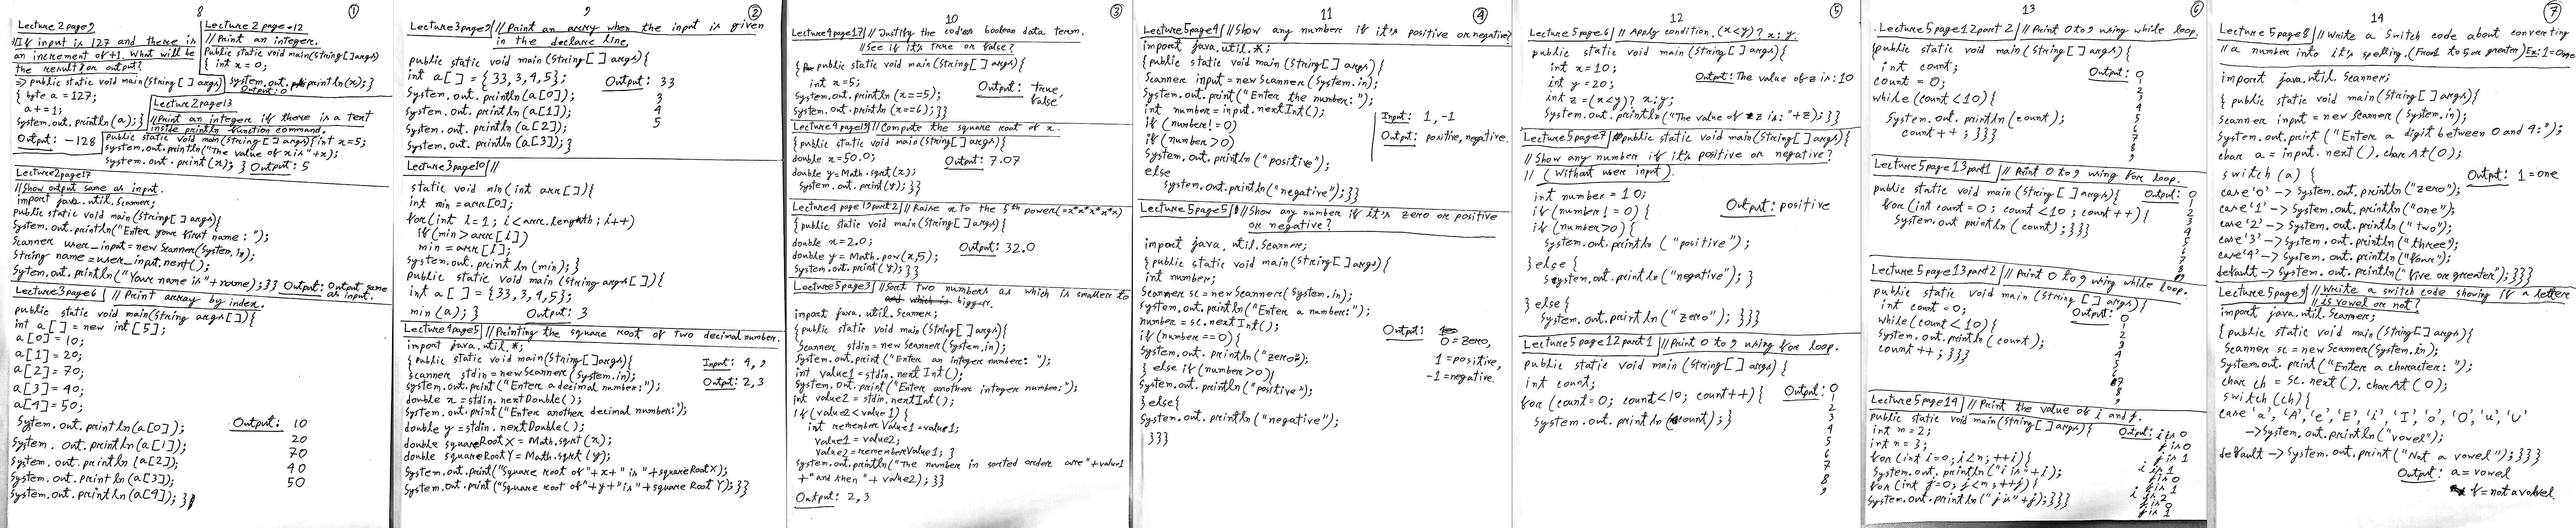 8
①
Lecture 2 page 9
//If input is 127 and there is
an increment of +1. What will be
the result or output?
=> public static void main(String[] args)
{ byte a = 127;
a += 1;
System.out.println(a); }
Output: -128
Lecture 2 page-12
//Print an integer.
Public static void main(String[] args)
{ int x = 0;
System.out.println(x); }
Output: 0
Lecture 2 page 13
//Print an integer if there is a text
inside println function command.
Public static void main(String[] args){ int x=5;
System.out.println("The value of x is"+x);
System.out.print(x); } Output: 5
Lecture 2 page 17
//Show output same as input.
import java.util.Scanner;
public static void main(String[] args){
System.out.println("Enter your first name: ");
Scanner user_input = new Scanner(System.in);
String name = user_input.next();
Sytem.out.println("Your name is"+name);}} Output: Output same
as input.
Lecture 3 page 6 // Print array by index.
public static void main(String args[]){
int a[] = new int[5];
a[0] = 10;
a[1] = 20;
a[2] = 70;
a[3] = 40;
a[4] = 50;
System.out.println(a[0]); Output: 10
System.out.println(a[1]); 20
System.out.println(a[2]); 70
System.out.println(a[3]); 40
System.out.println(a[4]); }} 50
9
②
Lecture 3 page 9 // Print an array when the input is given
in the declare line,
public static void main(String args[]){
int a[] = {33,3,4,5}; Output: 33
System.out.println(a[0]); 3
System.out.println(a[1]); 4
System.out.println(a[2]); 5
System.out.println(a[3]); }
Lecture 3 page 10 //
static void min(int arr[]){
int min = arr[0];
for(int i=1; i<arr.length; i++)
if(min>arr[i])
min = arr[i];
System.out.println(min); }
public static void main(String args[]){
int a[] = {33,3,4,5};
min(a); } Output: 3
Lecture 4 page 5 //Printing the square root of two decimal number.
import java.util.*;
{ public static void main(String[] args){ Input: 4, 9
Scanner stdin = new Scanner(System.in);
System.out.print("Enter a decimal number:"); Output: 2, 3
double x = stdin.nextDouble();
System.out.print("Enter another decimal number:");
double y = stdin.nextDouble();
double squareRootX = Math.sqrt(x);
double squareRootY = Math.sqrt(y);
System.out.print("Square root of"+x+"is"+squareRootX);
System.out.print("Square root of"+y+"is"+squareRootY);}}
10
③
Lecture 4 page 17 // Justify the codes boolean data term.
//See if it's true or false?
{ public static void main(String[] args){
int x=5;
System.out.println(x==5); Output: true,
System.out.println(x==6);}} false
Lecture 4 page 19 // Compute the square root of x.
{ public static void main(String[] args){
double x=50.0; Output: 7.07
double y=Math.sqrt(x);
System.out.print(y);}}
Lecture 4 page 19 part 2 // Raise x to the 5th power(=x*x*x*x*x)
{ public static void main(String[] args){
double x=2.0; Output: 32.0
double y = Math.pow(x,5);
System.out.print(y);}}
Lecture 5 page 3 //Sort two numbers as which is smaller to
bigger.
import java.util.Scanner;
{ public static void main(String[] args){
Scanner stdin = new Scanner(System.in);
System.out.print("Enter an integer number: ");
int value1 = stdin.nextInt();
System.out.print("Enter another integer number:");
int value2 = stdin.nextInt();
if(value2<value1) {
int rememberValue1 = value1;
value1 = value2;
value2 = rememberValue1; }
System.out.println("The number in sorted order are"+value1
+"and then"+ value2); }}
Output: 2,3
11
④
Lecture 5 page 4 //Show any number if it's positive or negative?
import java.util.*;
{ public static void main(String[] args){
Scanner input = new Scanner(System.in);
System.out.print("Enter the number:");
int number = input.nextInt(); Input: 1, -1
if (number!=0)
if (number>0) Output: positive, negative.
System.out.println("positive");
else
System.out.println("negative");}}
Lecture 5 page 5 //Show any number if it's zero or positive
or negative?
import java.util.Scanner;
{ public static void main(String[] args){
int number;
Scanner sc = new Scanner(System.in);
System.out.println("Enter a number:");
number = sc.nextInt(); Output:
if (number==0){ 0=zero,
System.out.println("zero");
} else if (number>0){ 1=positive,
System.out.println("positive"); -1=negative.
} else{
System.out.println("negative");
}}}
12
⑤
Lecture 5 page 6 // Apply condition. (x<y)? x: y.
public static void main(String[] args){
int x=10; Output: The value of z is: 10
int y=20;
int z=(x<y)? x:y;
System.out.println("The value of z is:"+z);}}
Lecture 5 page 7 public static void main(String[] args){
//Show any number if it's positive or negative?
// (Without user input).
int number = 10;
if(number!=0) { Output: positive
if(number>0){
System.out.println ("positive");
} else {
System.out.println("negative"); }
} else {
System.out.println("zero"); }}}
Lecture 5 page 12 part 1 //Print 0 to 9 using for loop.
public static void main(String[] args){
int count; Output: 0
for (count=0; count<10; count++){ 1
System.out.println(count);} 2
3
4
5
6
7
8
9
13
⑥
Lecture 5 page 12 part 2 // Print 0 to 9 using while loop.
{public static void main(String[] args){
int count; Output: 0
count = 0; 1
while(count<10){ 2
System.out.println(count); 3
count++;}}} 4
5
6
7
8
9
Lecture 5 page 13 part 1 // Print 0 to 9 using for loop.
public static void main(String[] args){ Output: 0
for(int count=0; count<10; count++){ 1
System.out.println(count);}}} 2
3
4
5
6
7
8
9
Lecture 5 page 13 part 2 // Print 0 to 9 using while loop.
public static void main(String[] args){
int count = 0; Output: 0
while(count<10){ 1
System.out.println(count); 2
count++;}}} 3
4
5
6
7
8
9
Lecture 5 page 14 // Print the value of i and j.
public static void main(String[] args){ Output: i is 0
int m=2; j is 0
int n=3; j is 1
for(int i=0; i<n; ++i){ i is 1
System.out.println("i is"+i); j is 0
for(int j=0; j<m; ++j){ j is 1
System.out.println("j is"+j);}}} i is 2
j is 0
j is 1
14
⑦
Lecture 5 page 8 // Write a Switch code about converting
// a number into it's spelling. (From 1 to 5 or greater) Ex: 1=one
import java.util.Scanner;
{ public static void main(String[] args){
Scanner input = new Scanner(System.in);
System.out.print ("Enter a digit between 0 and 4:");
char a = input.next().charAt(0);
switch(a) { Output: 1=one
case '0' -> System.out.println("zero");
case '1' -> System.out.println("one");
case '2' -> System.out.println("two");
case '3' -> System.out.println("three");
case '4' -> System.out.println("four");
default -> System.out.println("five or greater");}}}
Lecture 5 page 9 // Write a switch code showing if a letter
// is vowel or not?
import java.util.Scanner;
{ public static void main(String[] args){
Scanner sc = new Scanner(System.in);
System.out.print("Enter a character:");
char ch = Sc.next().charAt(0);
switch(ch){
case 'a', 'A', 'e', 'E', 'i', 'I', 'o', 'O', 'u', 'U'
->System.out.println("vowel");
default -> System.out.print("Not a vowel");}}}
Output: a=vowel
f=not a vowel.